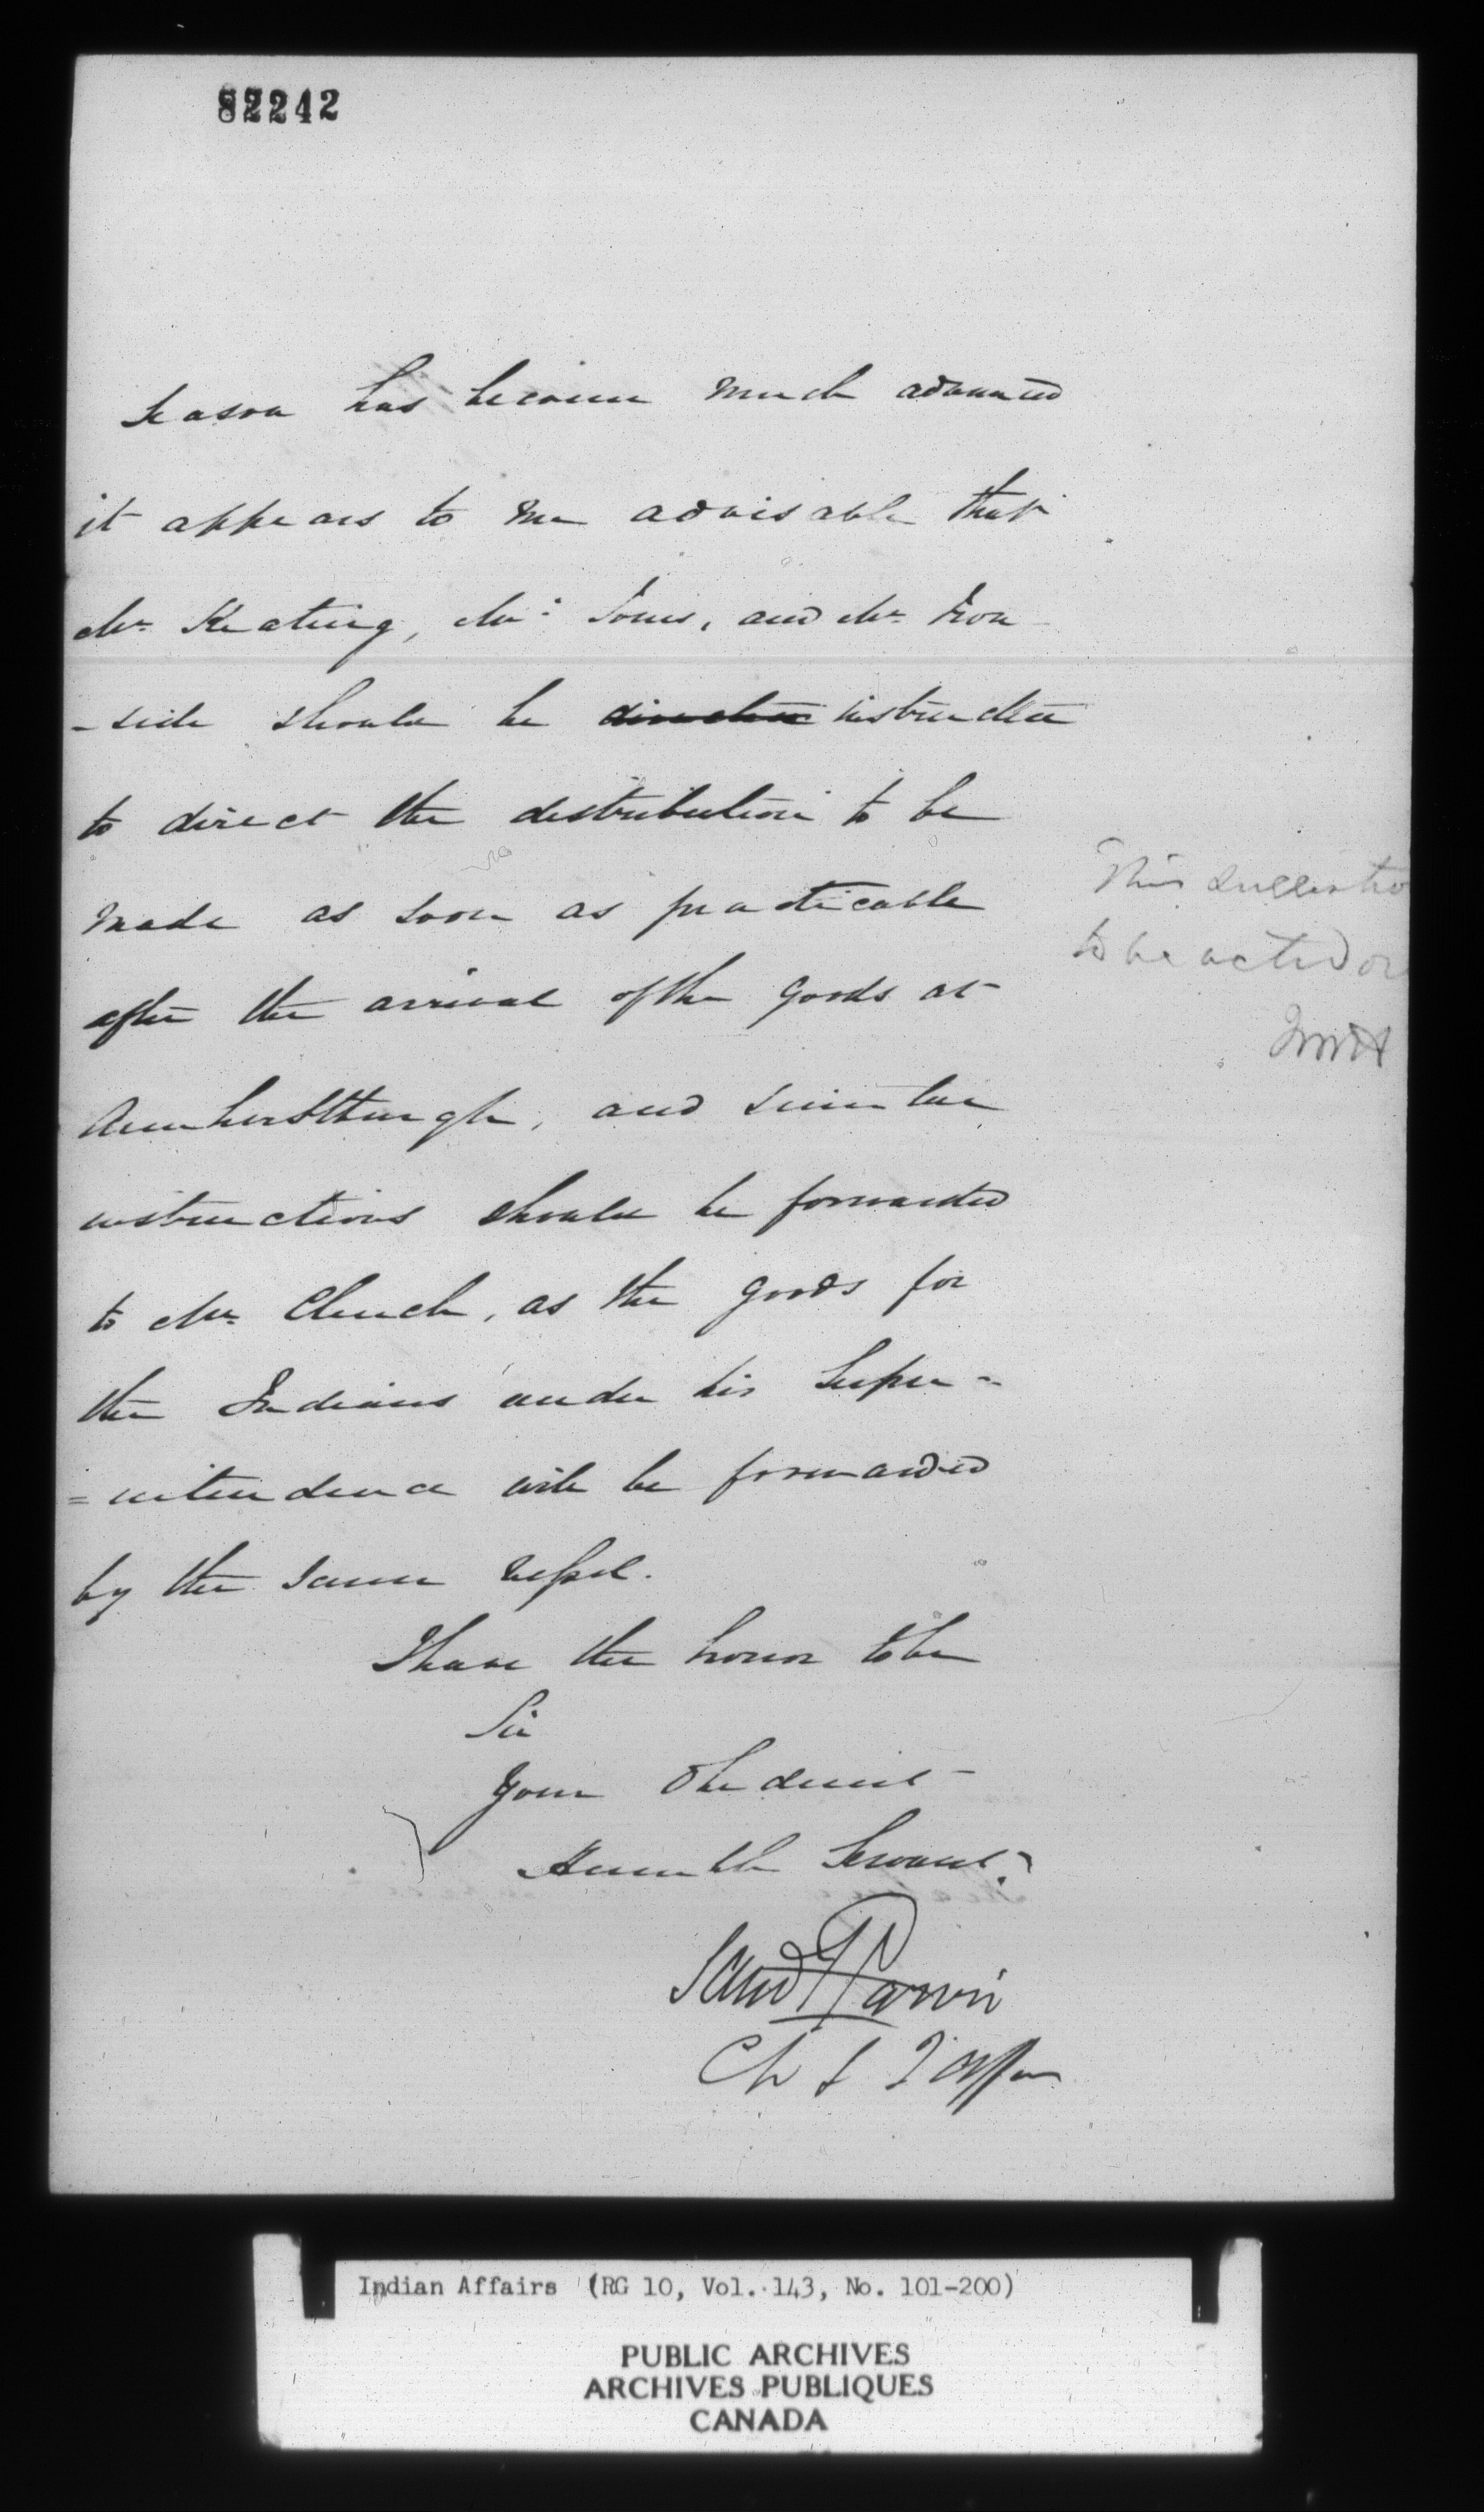 82242
Season has become much advanced
it appears to me advisable that
Mr. Keating, Mr. Jones, and Mr. Iron
-side should be directed instructed
to direct the distribution to be
made as soon as practicable
after the arrival of the goods at
Amherstburgh, and similar
instructions should be forwarded
to Mr. Clench, as the goods for
the Indians under his Super-
=intendence will be forwarded
by the same vessel.
This suggestio
to be acted on
I have the honor to be
Sir
Your Obedient
Humble Servant
Saml P Jarvis
Indian Affairs (RG 10, Vol. 143, No. 101-200)
PUBLIC ARCHIVES
ARCHIVES PUBLIQUES
CANADA